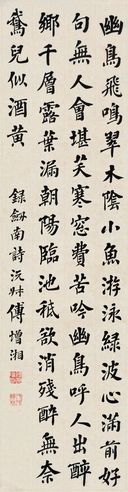 幽鳥飛鳴翠木陰小魚游泳綠波心滿前好
句無人會堪笑寒窓費苦吟幽鳥呼人出醉
鄉千層露葉漏朝陽臨池秪欲消殘醉無奈
鵞兒似酒黄
錄劍南詩沅叔傅增湘